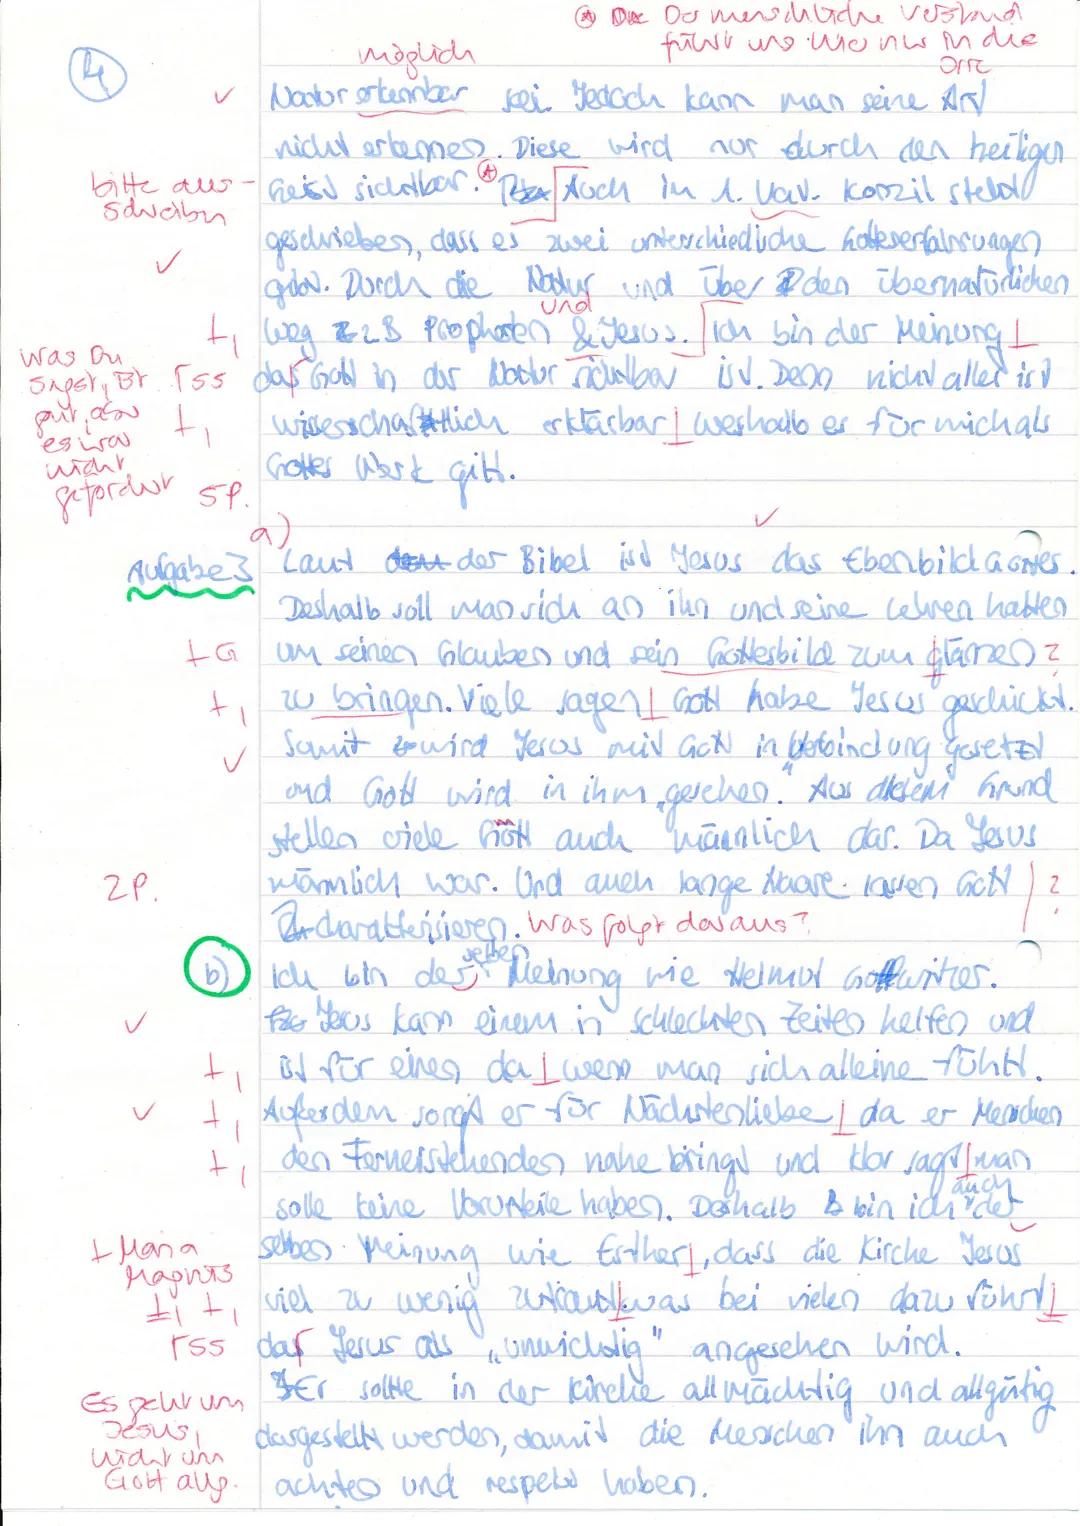 ④ Der menschliche Verstand
führt uns hier nur in die
Irre
4
möglich
Natur erkennbar sei. Jedoch kann man seine Art
nicht erkennen. Diese wird nur durch den heiligen
bitte aus-
schreiben
Geist sichtbar. Auch im 1. Vat. Konzil steht
geschrieben, dass es zwei unterschiedliche Gotteserfahrungen
gibt. Durch die Natur und über den übernatürlichen
und
Weg z.B Propheten & Jesus. Ich bin der Meinung
Was Du
sagst, ist
gut, aber
es war
nicht
gefordert
rss
daß Gott in der Natur sichtbar ist. Denn nicht alles ist
wissenschaftlich erklärbar weshalb es für mich als
Gottes Werk gilt.
5P.
a)
Aufgabe 3 Laut der Bibel ist Jesus das Ebenbild Gottes.
Deshalb soll man sich an ihn und seine Lehren halten
G um seinen Glauben und sein Gottesbild zum glänzen ?
zu bringen. Viele sagen Gott habe Jesus geschickt.
Somit wird Jesus mit Gott in Verbindung gesetzt
und Gott wird in ihm „gesehen." Aus diesem Grund
stellen viele Gott auch männlich dar. Da Jesus
2P. männlich war. Und auch lange Haare lassen Gott ?
charakterisieren. Was folgt daraus?
selben
b) Ich bin der Meinung wie Helmut Gollwitzer.
Jesus kann einem in schlechten Zeiten helfen und
ist für einen da wenn man sich alleine fühlt.
Außerdem sorgt er für Nächstenliebe da er Menschen
den Fernerstehenden nahe bringt und klar sagt man
auch
solle keine Vorurteile haben. Deshalb bin ich der
Maria
Magnis
selben Meinung wie Esther, dass die Kirche Jesus
viel zu wenig zutraut was bei vielen dazu führt
rss daß Jesus als „unwichtig" angesehen wird.
Er sollte in der Kirche allmächtig und allgütig
Es geht um
Jesus,
nicht um
Gott allg.
dargestellt werden, damit die Menschen ihn auch
achten und respekt haben.